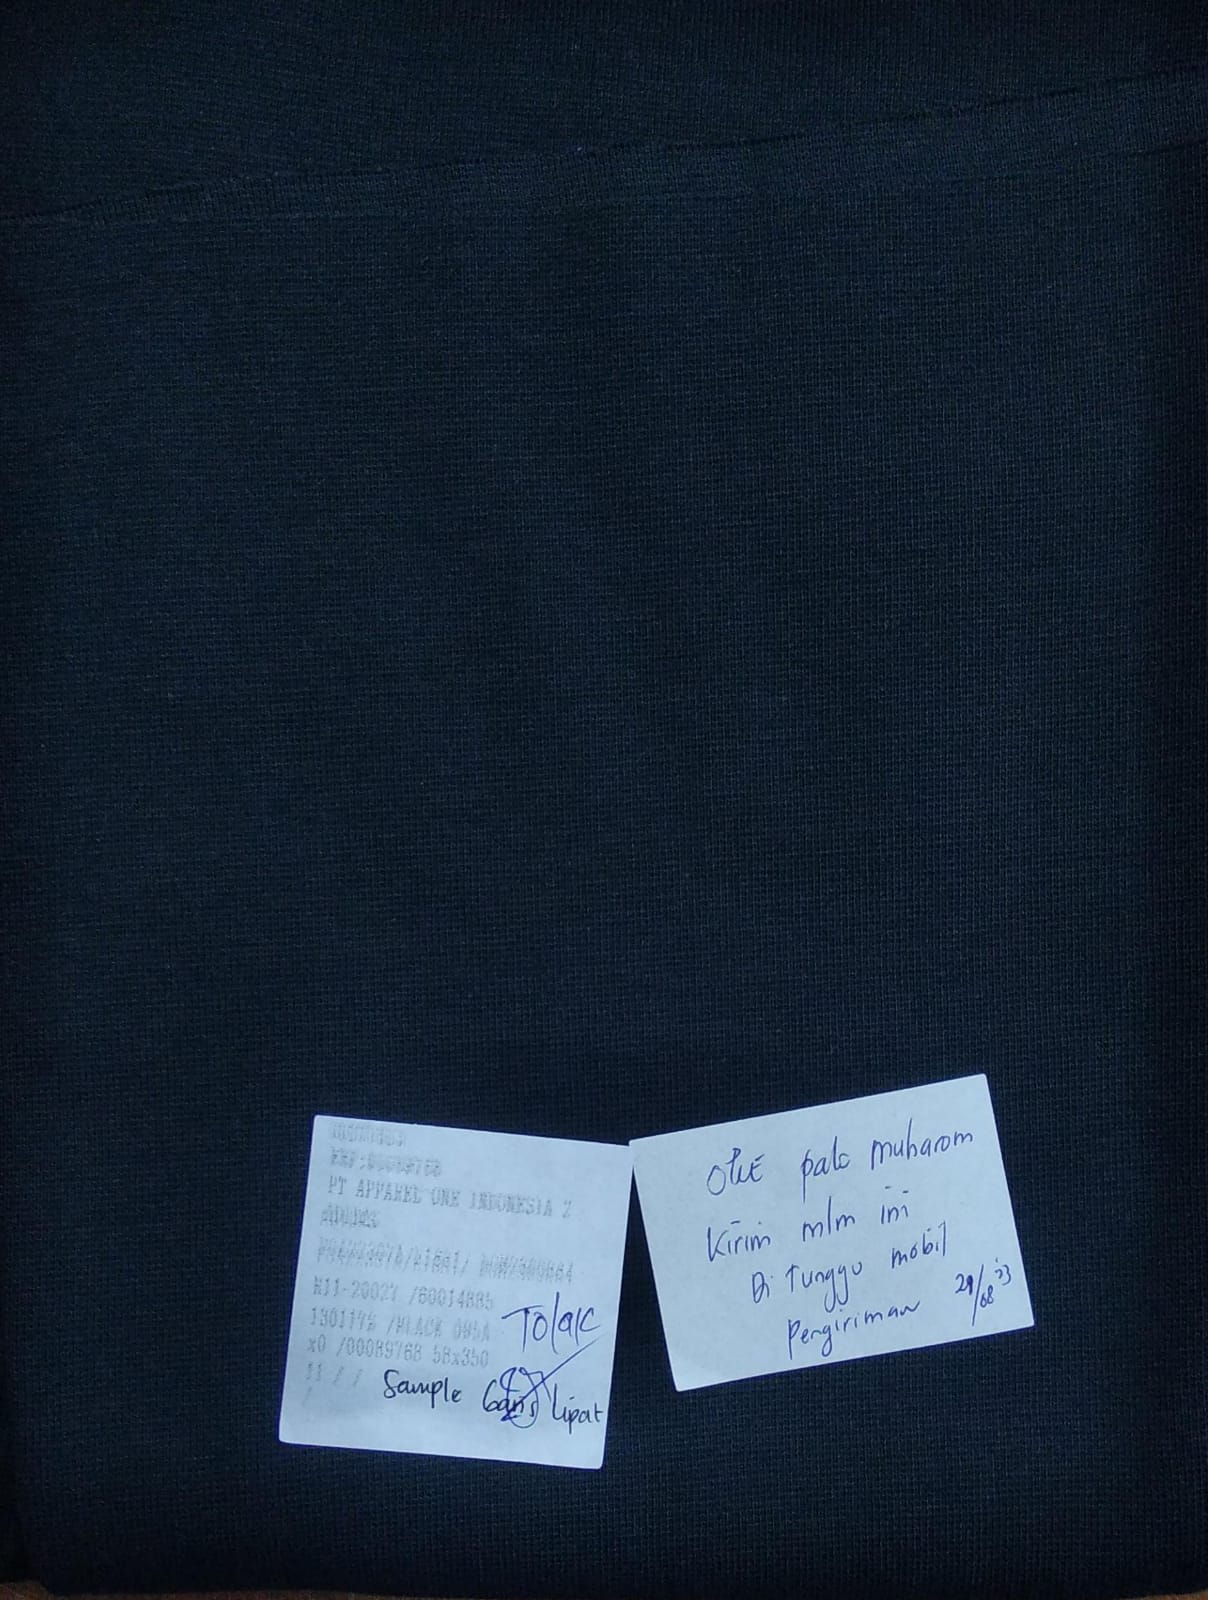 PT APPAREL ONE INDONESIA 2
K11-20027 /60014885
/BLACK 095A
x0 /00089768 58x350
11 / /
/
Tolak
Sample Garis Lipat
OKE pak muharom
Kirim mlm ini
Di Tunggu mobil
Pengiriman 29/08 '23